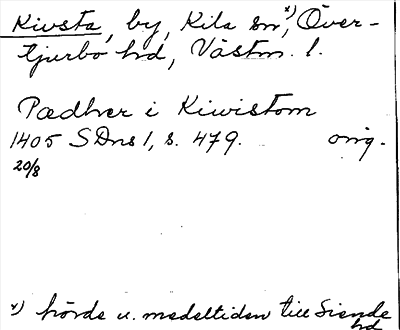 Kivsta, by, Kila sn,ˣ⁾ Över-
tjurbo hd, Västm. l.
Pædher i Kiwistom
1405 SDns 1, s. 479. orig.
20/8
x) hörde u. medeltiden till Siende
hd